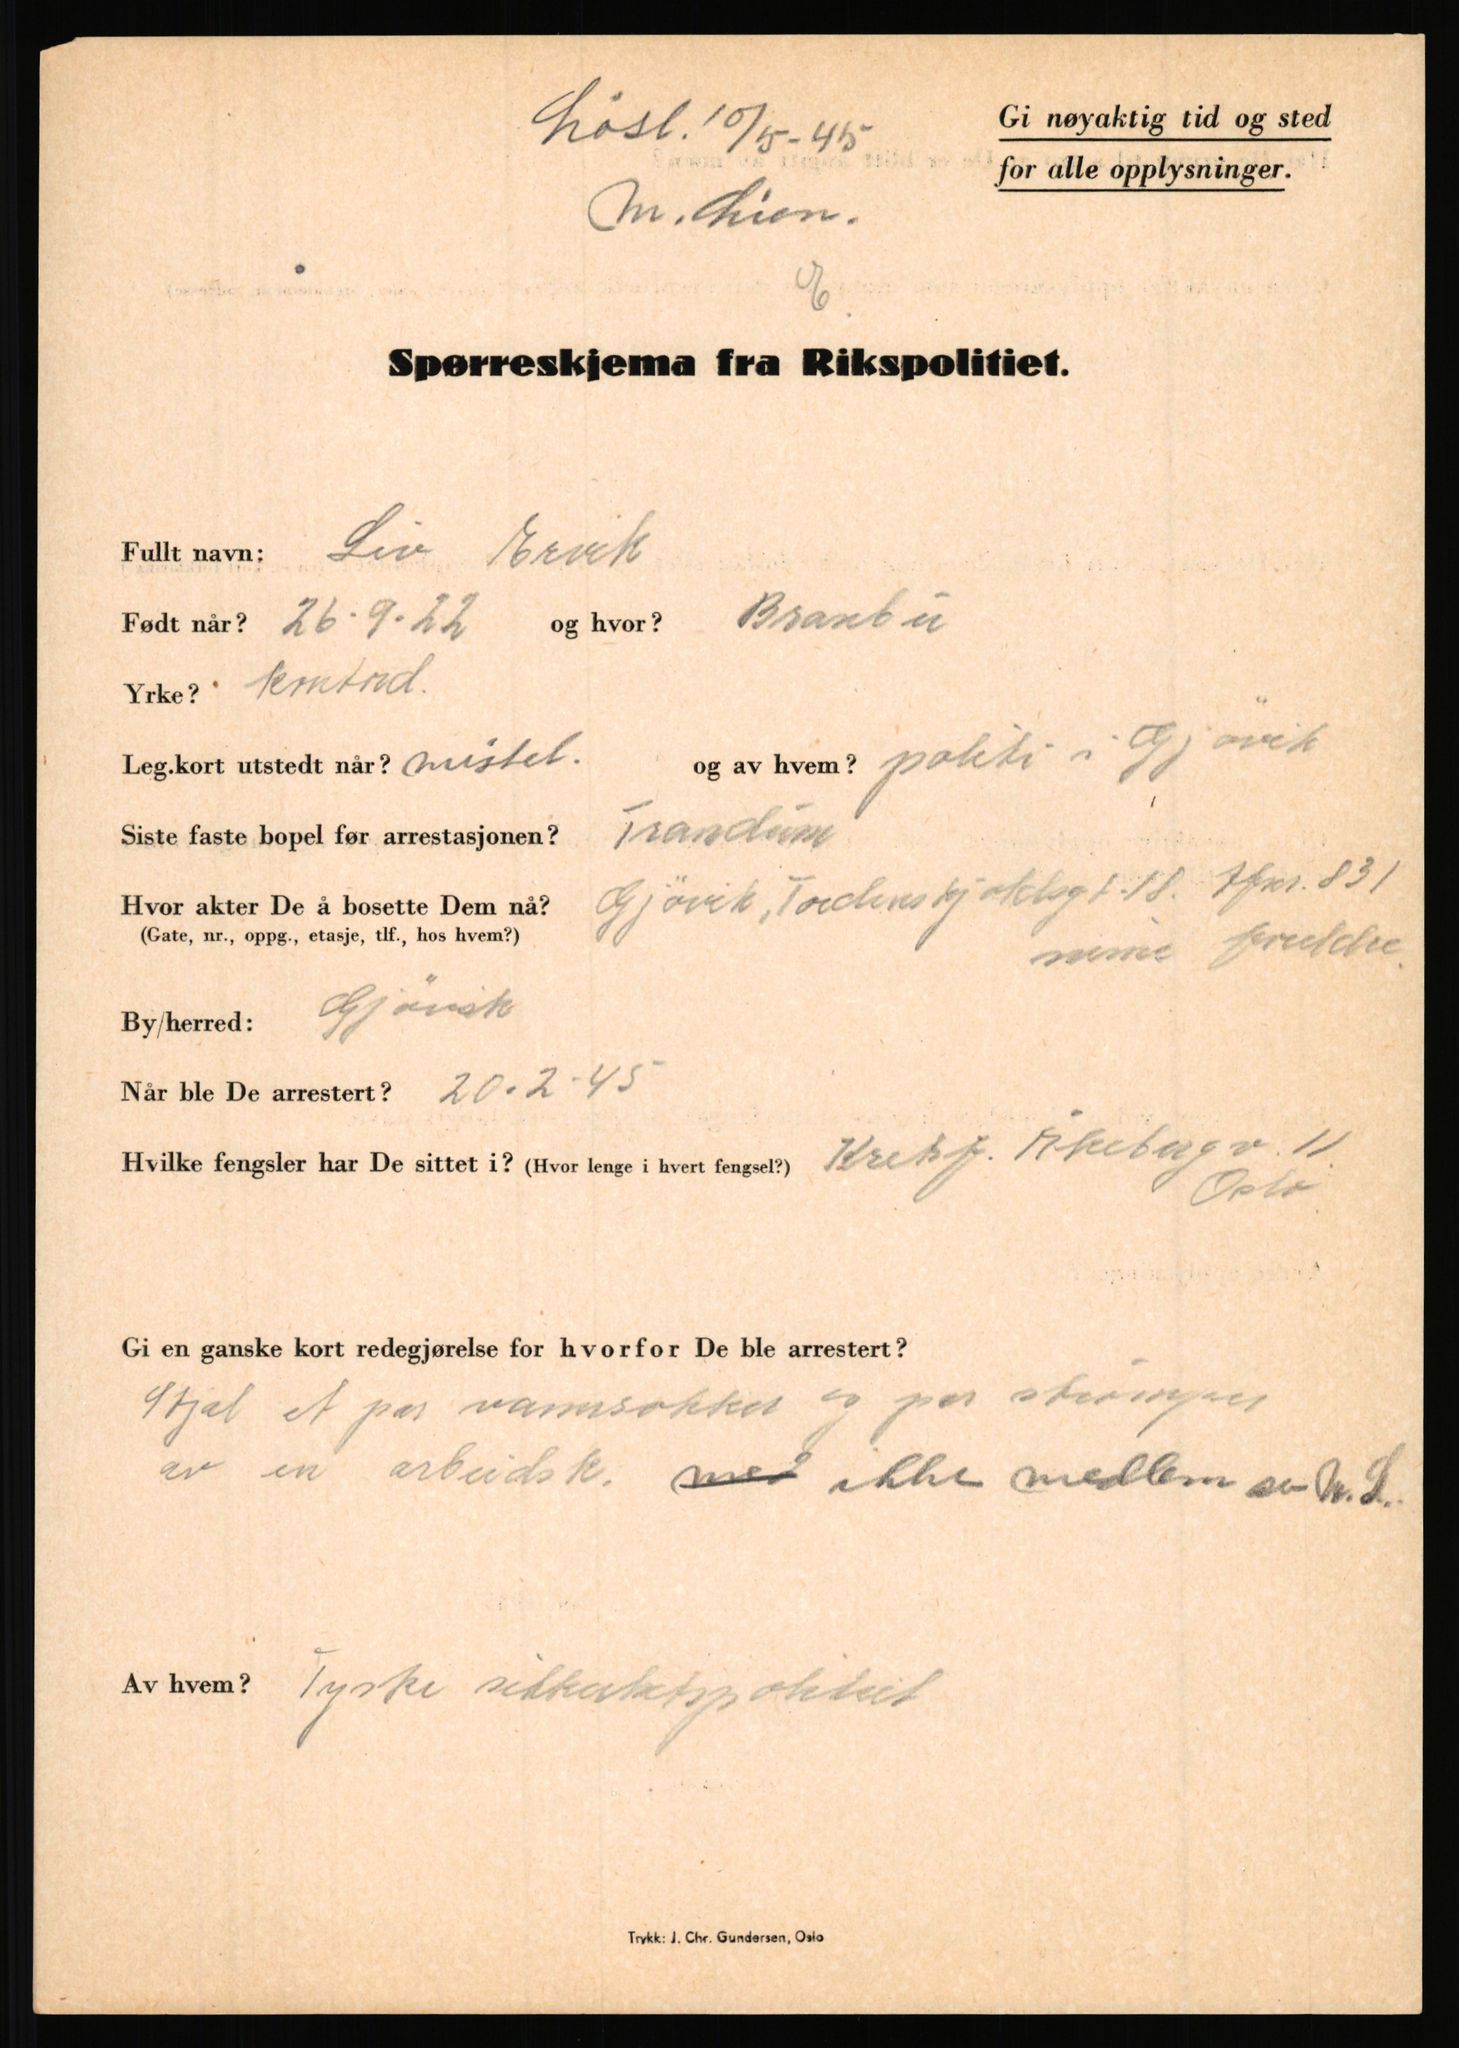 Lösl. 10/5-45
Gi nøyaktig tid og sted
for alle opplysninger.
M. Lien.
E.
Spørreskjema fra Rikspolitiet.
Fullt navn: Liv Ervik
Født når? 26.9.22 og hvor? Branbu
Yrke? kontord.
Leg.kort utstedt når? mistet. og av hvem? politi i Gjövik
Siste faste bopel før arrestasjonen? Trandum
Hvor akter De å bosette Dem nå? Gjövik, Tordenskjoldsgt. 18. tfnr. 831
(Gate, nr., oppg., etasje, tlf., hos hvem?) mine foreldre.
By/herred: Gjövik
Når ble De arrestert? 20.2.45
Hvilke fengsler har De sittet i? (Hvor lenge i hvert fengsel?) Kretsf. Åkebergv. 11
Oslo
Gi en ganske kort redegjørelse for hvorfor De ble arrestert?
Stjal et par vannsokker og par strömper
av en arbeidsk. med ikke medlem av N.S.
Av hvem? Tyske sikkerhetspolitiet
Trykk: J. Chr. Gundersen, Oslo